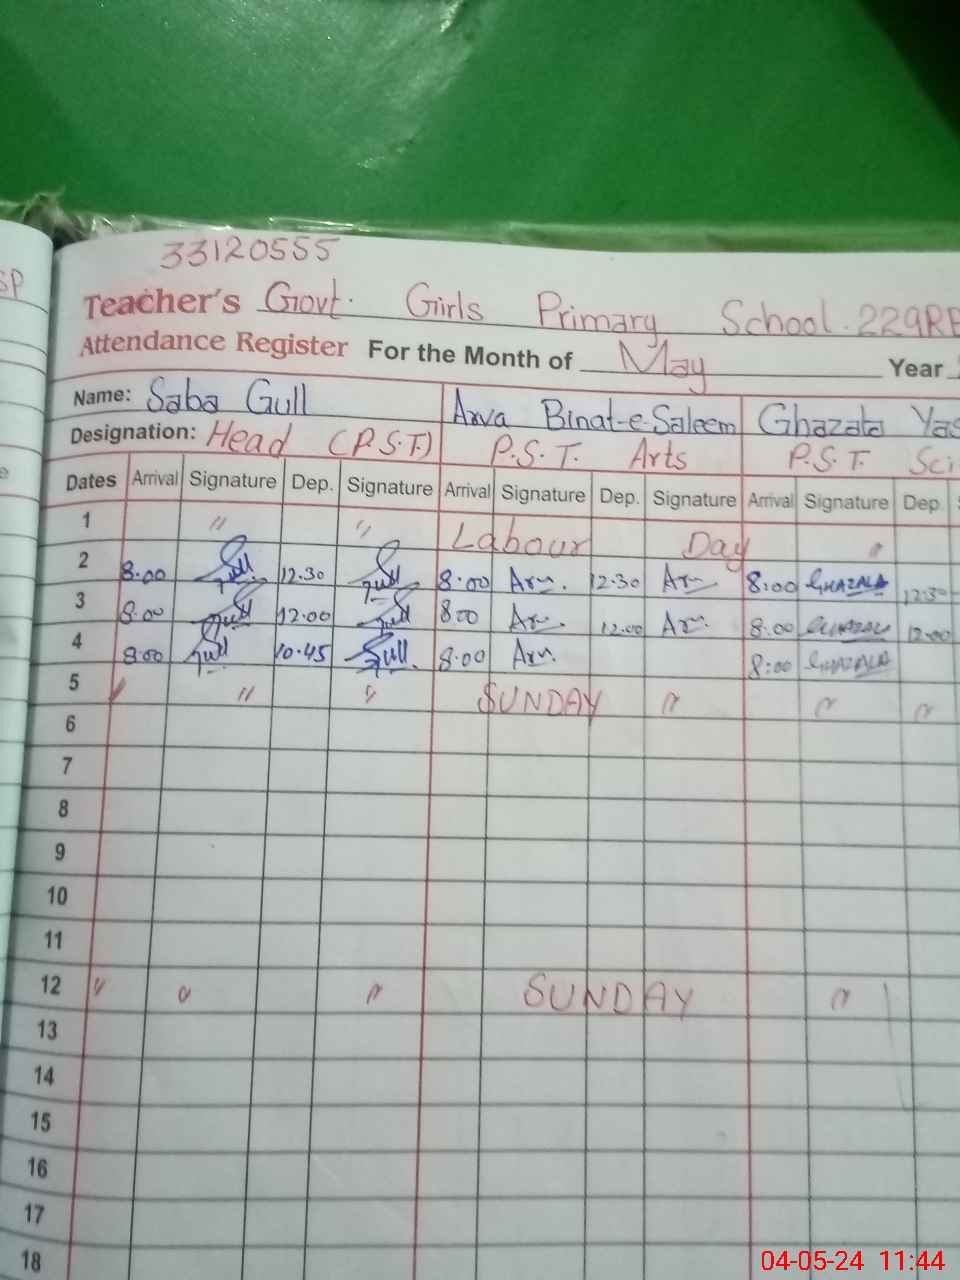 SP
33120555
Teacher's Govt. Girls Primary School. 229RB
Attendance Register For the Month of May Year
Name: Saba Gull Arva Binat-e-Saleem Ghazala Yas
Designation: Head (P.S.T.) P.S.T. Arts P.S.T. Sci
Dates Arrival Signature Dep. Signature Arrival Signature Dep. Signature Arrival Signature Dep. S
1 " " Labour Day "
2 8.00 Gull 12.30 Gull 8.00 Arv. 12.30 Arv 8:00 GHAZALA 12:30
3 8.00 Gull 12.00 Gull 8.00 Arv. 12.00 Arv. 8.00 GHAZALA 12:00
4 8.00 Gull 10.45 Gull. 8.00 Arv. 8:00 GHAZALA
5 " " " SUNDAY " " "
6
7
8
9
10
11
12 " " " SUNDAY "
13
14
15
16
17
18
04-05-24 11:44